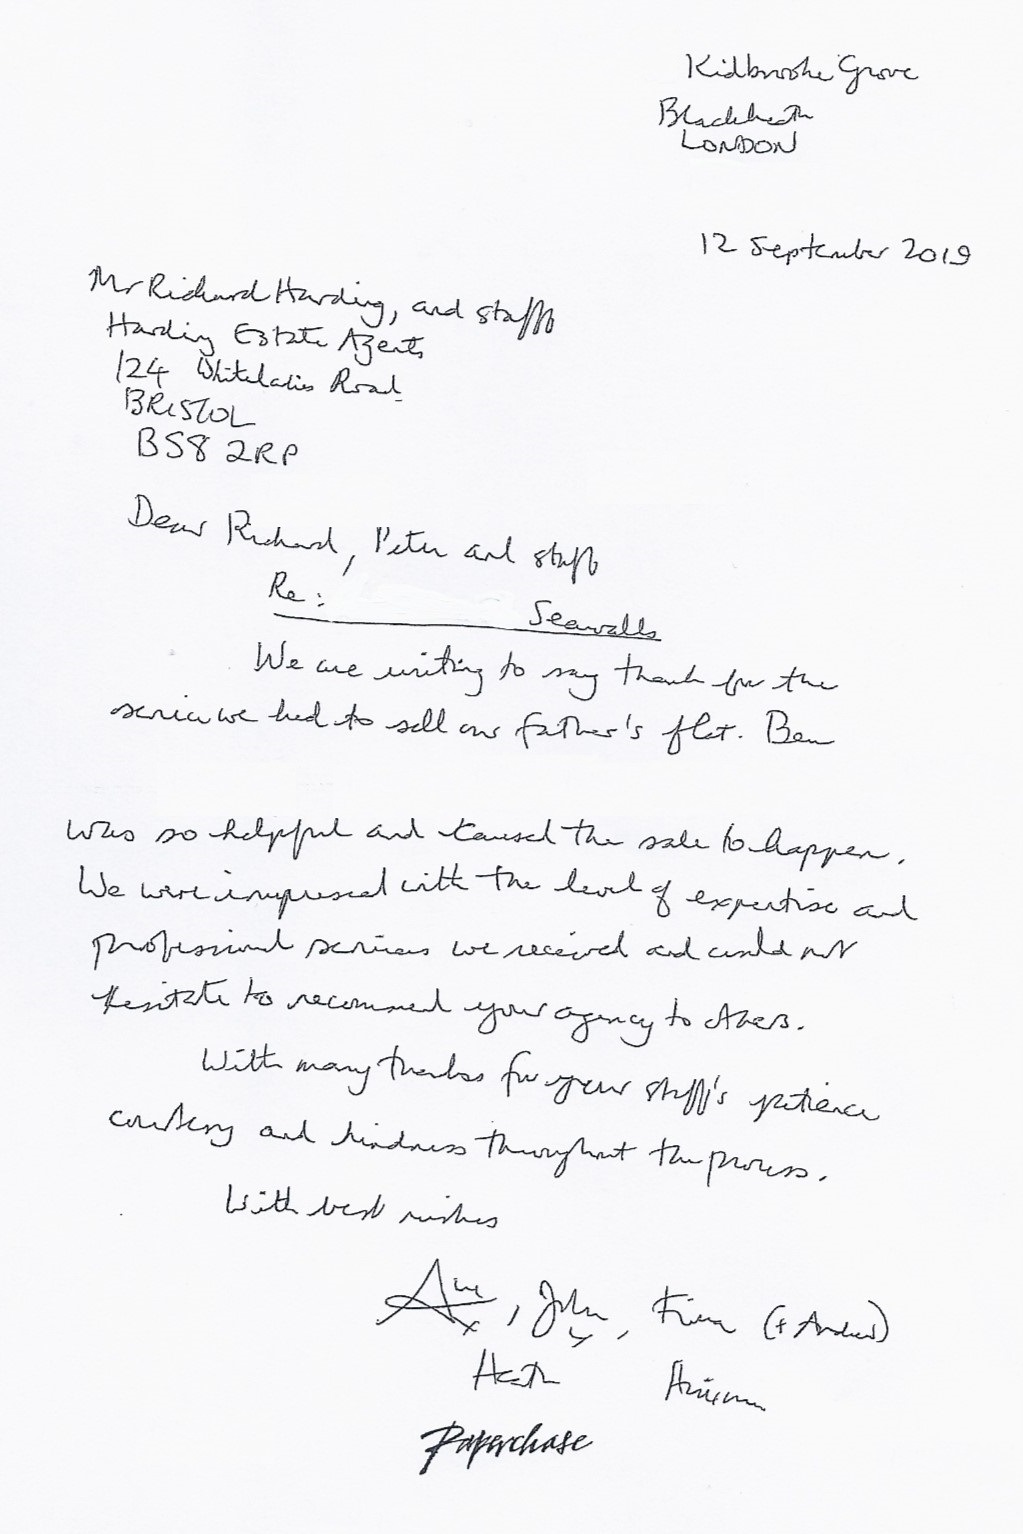 Kidbrooke Grove
Blackheath
LONDON
12 September 2019
Mr Richard Harding, and staff
Harding Estate Agents
124 Whiteladies Road
BRISTOL
BS8 2RP
Dear Richard, Peter and staff
Re: Seawalls
We are writing to say thank for the
service we had to sell our father's flat. Ben
was so helpful and caused the sale to happen.
We were impressed with the level of expertise and
professional services we received and would not
hesitate to recommend your agency to others.
With many thanks for your staff's patience
courtesy and kindness throughout the process.
With best wishes
, John, Fiona (+ Andrew)
Heath
Paperchase